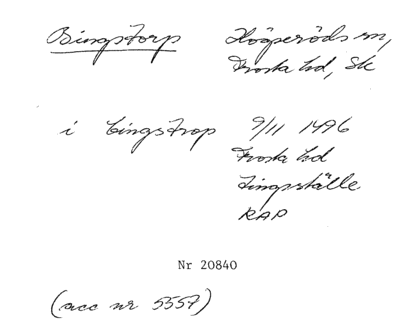 Bingstorp Högseröds sn,
Frosta hd, Sk
i bingstrop 9/11 1496
Frosta hd
Tingsställe
RAP
Nr 20840
(acc nr 5557)